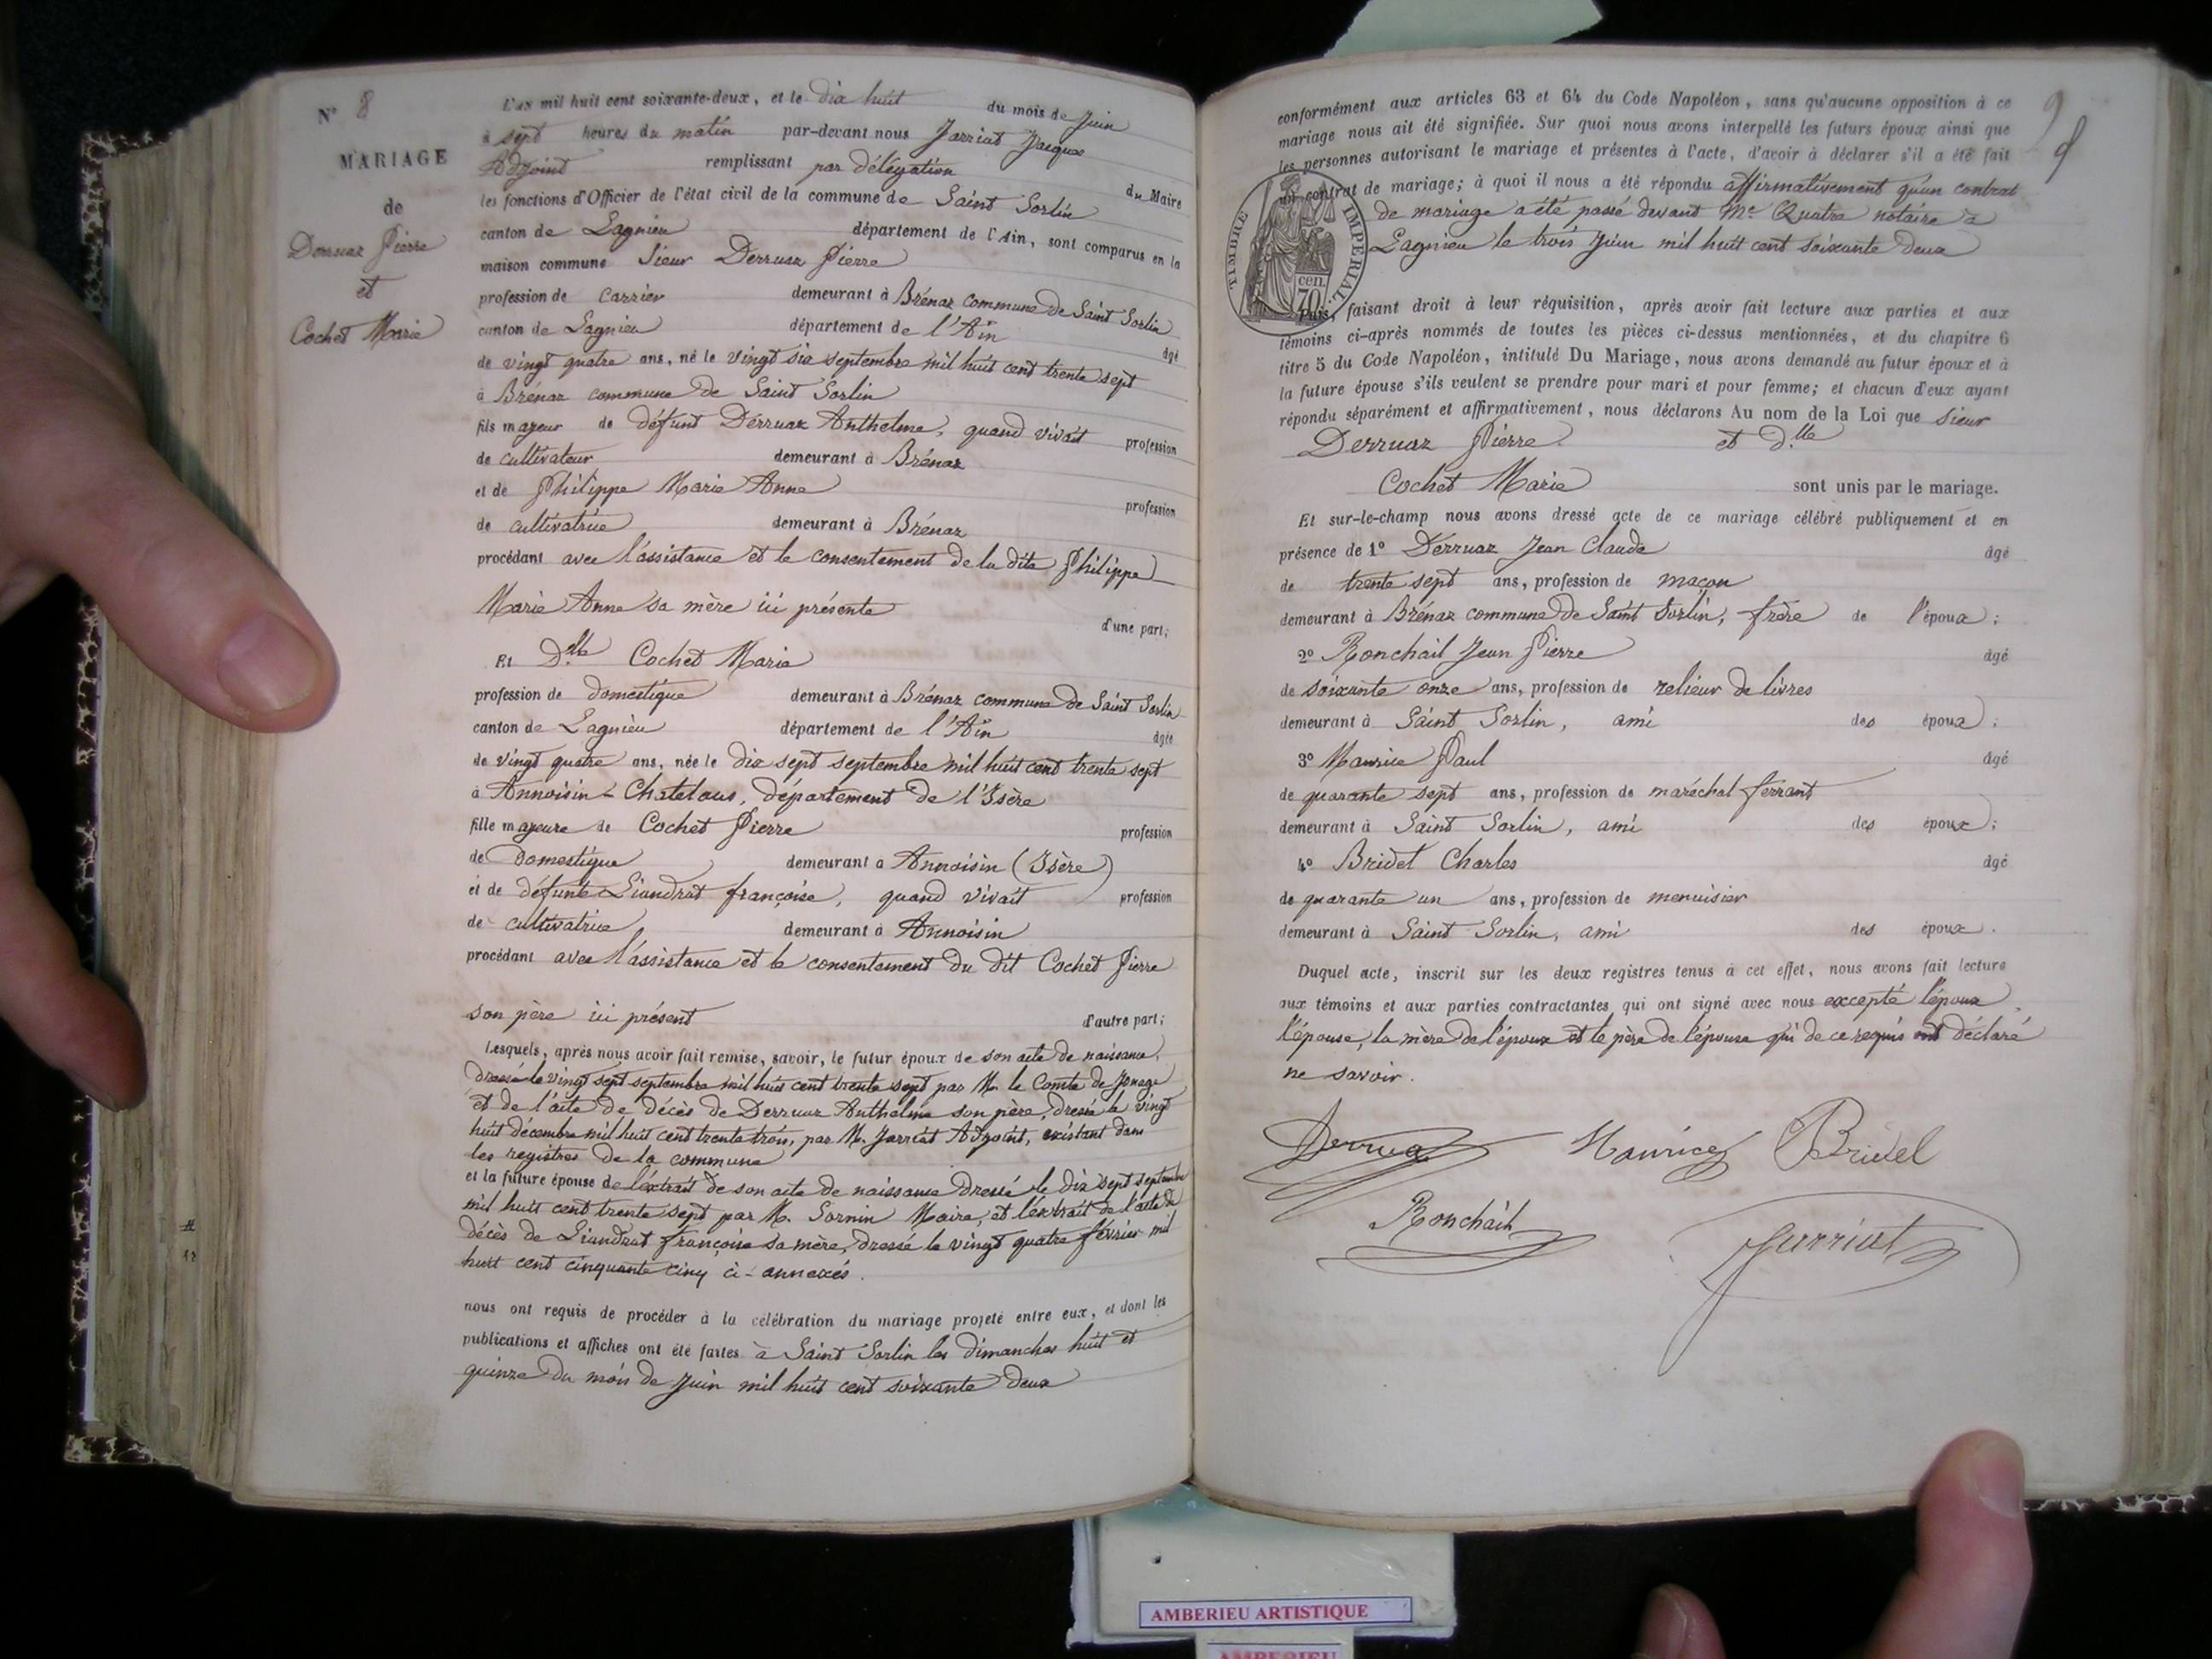 N° 8
MARIAGE
de
Derruaz Pierre
et
Cochet Marie
L'an mil huit cent soixante-deux, et le dix huit du mois de Juin
à sept heures du matin par-devant nous Jarriat Jacque
Adjoint remplissant par délégation du Maire
les fonctions d'Officier de l'état civil de la commune de Saint Sorlin
canton de Lagnieu département de l'Ain, sont comparus en la
maison commune Sieur Derruaz Pierre
profession de carrier demeurant à Brénaz commune de Saint Sorlin
canton de Lagnieu département de l'Ain âgé
de vingt quatre ans, né le vingt six septembre mil huit cent trente sept
à Brénaz commune de Saint Sorlin
fils majeur de défunt Derruaz Anthelme, quand vivait profession
de cultivateur demeurant à Brénaz
et de Philippe Marie Anne profession
de cultivatrice demeurant à Brénaz
procédant avec l'assistance et le consentement de la dite Philippe
Marie Anne sa mère ici présente d'une part;
Et D.lle Cochet Marie
profession de domestique demeurant à Brénaz commune de Saint Sorlin
canton de Lagnieu département de l'Ain âgée
de vingt quatre ans, née le dix sept septembre mil huit cent trente sept
à Annoisin-Chatelans, département de l'Isère
fille majeure de Cochet Pierre profession
de domestique demeurant à Annoisin (Isère)
et de défunte Liandrat françoise, quand vivait profession
de cultivatrice demeurant à Annoisin
procédant avec l'assistance et le consentement du dit Cochet Pierre
son père ici présent d'autre part;
Lesquels, après nous avoir fait remise, savoir, le futur époux de son acte de naissance,
dressé le vingt sept septembre mil huit cent trente sept par M. le Comte de Jonage
et de l'acte de décès de Derruaz Anthelme son père, dressé le vingt
huit décembre mil huit cent trente trois, par M. Jarriat Adjoint, existant dans
les registres de la commune
et la future épouse de l'extrait de son acte de naissance dressé le dix sept septembre
mil huit cent trente sept par M. Sornin Maire, et l'extrait de l'acte de
décès de Liandrat françoise sa mère, dressé le vingt quatre février mil
huit cent cinquante cinq ci-annexés.
nous ont requis de procéder à la célébration du mariage projeté entre eux, et dont les
publications et affiches ont été faites à Saint Sorlin les dimanches huit et
quinze du mois de Juin mil huit cent soixante deux
9
conformément aux articles 63 et 64 du Code Napoléon, sans qu'aucune opposition à ce
mariage nous ait été signifiée. Sur quoi nous avons interpellé les futurs époux ainsi que
les personnes autorisant le mariage et présentes à l'acte, d'avoir à déclarer s'il a été fait
un contrat de mariage; à quoi il nous a été répondu affirmativement qu'un contrat
de mariage a été passé devant Me Quatre notaire à
Lagnieu le trois Juin mil huit cent soixante deux
TIMBRE IMPÉRIAL.
cen.
70
Puis, faisant droit à leur réquisition, après avoir fait lecture aux parties et aux
témoins ci-après nommés de toutes les pièces ci-dessus mentionnées, et du chapitre 6
titre 5 du Code Napoléon, intitulé Du Mariage, nous avons demandé au futur époux et à
la future épouse s'ils veulent se prendre pour mari et pour femme; et chacun d'eux ayant
répondu séparément et affirmativement, nous déclarons Au nom de la Loi que sieur
Derruaz Pierre et d.lle
Cochet Marie sont unis par le mariage.
Et sur-le-champ nous avons dressé acte de ce mariage célébré publiquement et en
présence de 1° Derruaz Jean Claude âgé
de trente sept ans, profession de maçon
demeurant à Brénaz commune de Saint Sorlin, frère de l'époux;
2° Ronchail Jean Pierre âgé
de soixante onze ans, profession de relieur de livres
demeurant à Saint Sorlin, ami des époux;
3° Maurice Paul âgé
de quarante sept ans, profession de maréchal ferrant
demeurant à Saint Sorlin, ami des époux;
4° Bridel Charles âgé
de quarante un ans, profession de menuisier
demeurant à Saint Sorlin, ami des époux.
Duquel acte, inscrit sur les deux registres tenus à cet effet, nous avons fait lecture
aux témoins et aux parties contractantes qui ont signé avec nous excepté l'époux,
l'épouse, la mère de l'époux et le père de l'épouse qui de ce requis ont déclaré
ne savoir.
Derruaz Maurice Bridel
Ronchail Jarriat
AMBERIEU ARTISTIQUE
AMBERIEU